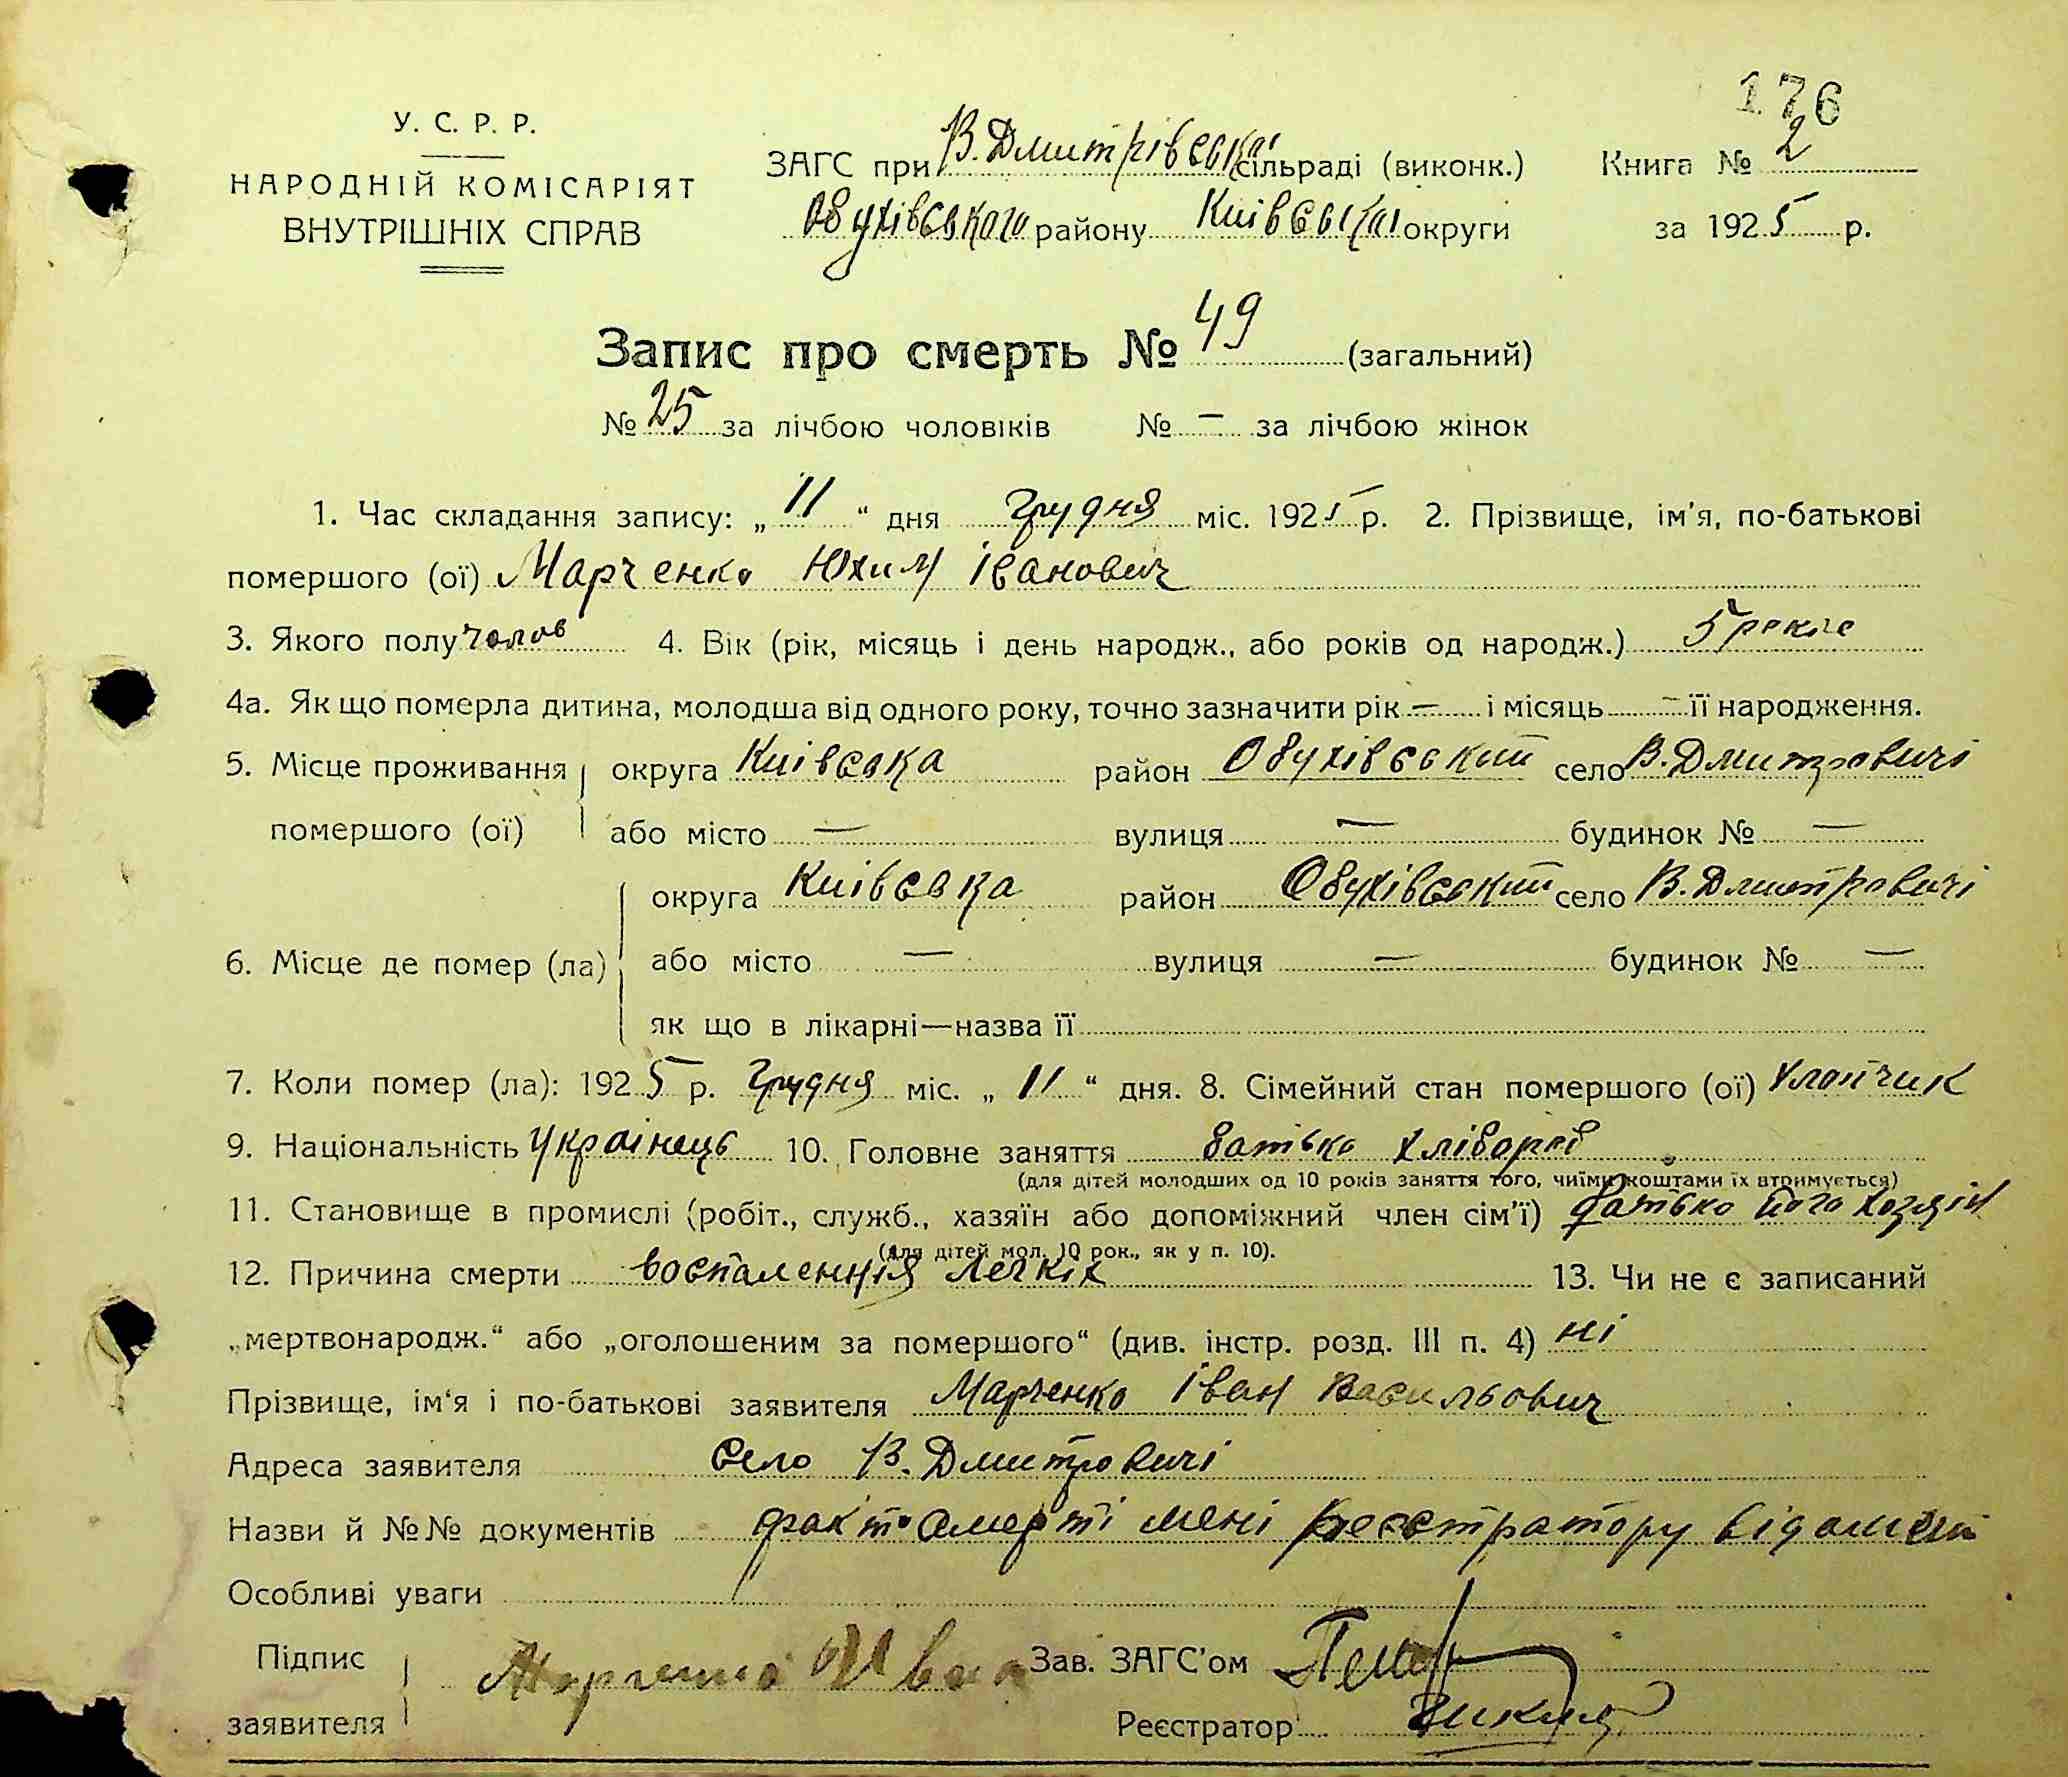 176
У. С. Р. Р.
НАРОДНІЙ КОМІСАРІЯТ
ВНУТРІШНІХ СПРАВ
ЗАГС при В. Дмитрівській сільраді (виконк.)
Обухівського району Київської округи
Книга № 2
за 1925 р.
Запис про смерть № 49 (загальний)
№ 25 за лічбою чоловіків № — за лічбою жінок
1. Час складання запису: „ 11 “ дня грудня міс. 1925 р. 2. Прізвище, ім'я, по-батькові
помершого (ої) Марченко Юхим Іванович
3. Якого полу чолов 4. Вік (рік, місяць і день народж., або років од народж.) 5 років
4а. Як що померла дитина, молодша від одного року, точно зазначити рік — і місяць — її народження.
5. Місце проживання округа Київська район Обухівський село В. Дмитровичі
помершого (ої) або місто — вулиця — будинок № —
округа Київська район Обухівський село В. Дмитровичі
6. Місце де помер (ла) або місто — вулиця — будинок № —
як що в лікарні—назва її
7. Коли помер (ла): 1925 р. грудня міс. „ 11 “ дня. 8. Сімейний стан помершого (ої) хлопчик
9. Національність Українець 10. Головне заняття батько хлібороб
(для дітей молодших од 10 років заняття того, чиїми коштами їх втримується)
11. Становище в промислі (робіт., служб., хазяїн або допоміжний член сім'ї) батько його хозяїн
(для дітей мол. 10 рок., як у п. 10).
12. Причина смерти воспаленнія легкіх 13. Чи не є записаний
„мертвонародж.“ або „оголошеним за помершого“ (див. інстр. розд. III п. 4) ні
Прізвище, ім'я і по-батькові заявителя Марченко Іван Васильович
Адреса заявителя село В. Дмитровичі
Назви й №№ документів факт смерті мені реєстратору відомий
Особливі уваги
Підпис
заявителя
Марченко Иван
Зав. ЗАГС'ом
Реєстратор